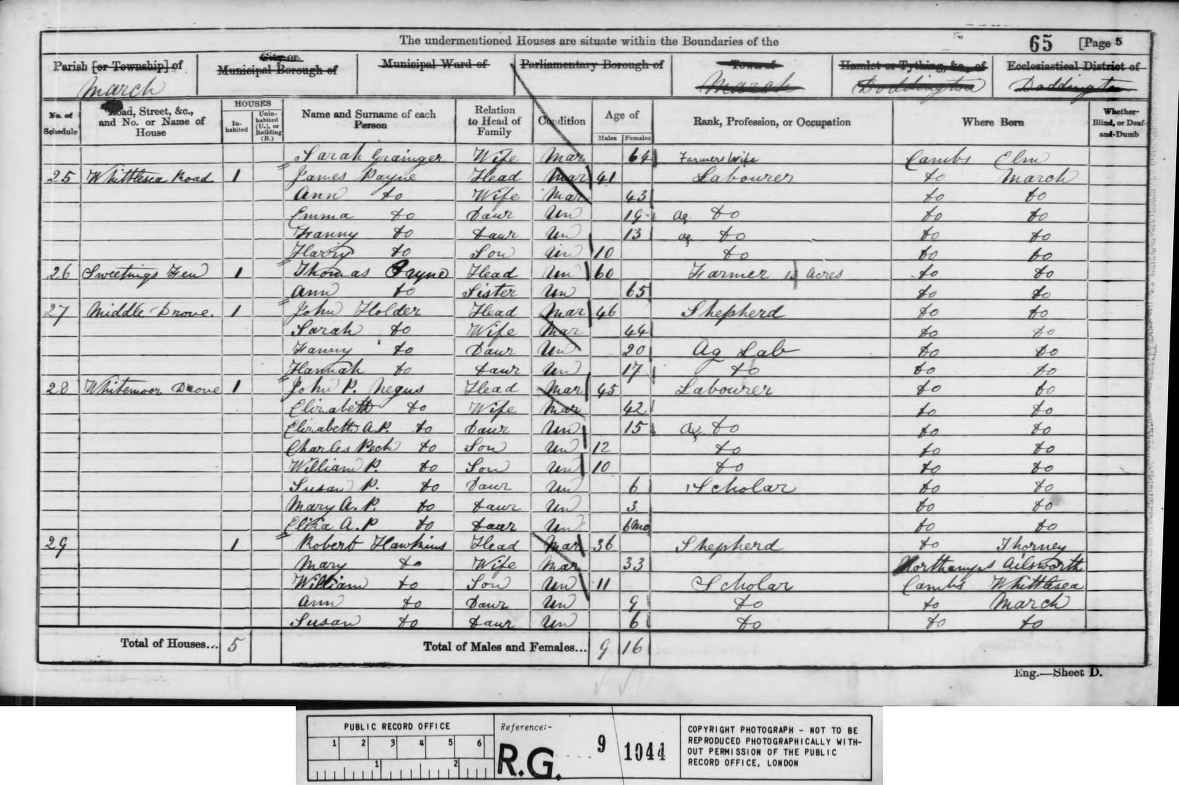 The undermentioned Houses are situate within the Boundaries of the
65 [Page 5
Parish [or Township] of City or Municipal Borough of Municipal Ward of Parliamentary Borough of Town of Hamlet or Tything, &c., of Ecclesiastical District of
March March Doddington Doddington
No. of Schedule Road, Street, &c., and No. or Name of House HOUSES Inhabited Uninhabited (U.), or Building (B.) Name and Surname of each Person Relation to Head of Family Condition Age of Males Females Rank, Profession, or Occupation Where Born Whether Blind, or Deaf-and-Dumb
Sarah Grainger Wife Mar 64 Farmers Wife Cambs Elm
25 Whittlesea Road 1 James Payne Head Mar 41 Labourer Do March
Ann Do Wife Mar 43 Do Do
Emma Do Daur Un 19 Ag Do Do Do
Fanny Do Daur Un 13 ag Do Do Do
Harry Do Son Un 10 Do Do Do
26 Sweetings Fen 1 Thomas Pryne Head Un 60 Farmer Acres Do Do
Ann Do Sister Un 65 Do Do
27 Middle Drove. 1 John Holder Head Mar 46 Shepherd Do Do
Sarah Do Wife Mar 44 Do Do
Fanny Do Daur Un 20 Ag Lab Do Do
Hannah Do Daur Un 17 Do Do Do
28 Whitemoor Drove 1 John P. Negus Head Mar 45 Labourer Do Do
Elizabeth Do Wife Mar 42 Do Do
Elizabeth A.P. Do Daur Un 15 Ag Do Do Do
Charles Peck Do Son Un 12 Do Do Do
William P. Do Son Un 10 Do Do Do
Susan P. Do Daur Un 6 Scholar Do Do
Mary A.P. Do Daur Un 3 Do Do
Eliza A.P Do Daur Un 6mo Do Do
29 1 Robert Hawkins Head Mar 36 Shepherd Do Thorney
Mary Do Wife Mar 33 Northamps Ailsworth
William Do Son Un 11 Scholar Cambs Whittlesea
Ann Do Daur Un 9 Do Do March
Susan Do Daur Un 6 Do Do Do
Total of Houses... 5 Total of Males and Females... 9 16
Eng.—Sheet D.
PUBLIC RECORD OFFICE
1 2 3 4 5 6
1 2
Reference:-
R.G. 9 1044
COPYRIGHT PHOTOGRAPH - NOT TO BE
REPRODUCED PHOTOGRAPHICALLY WITH-
OUT PERMISSION OF THE PUBLIC
RECORD OFFICE, LONDON